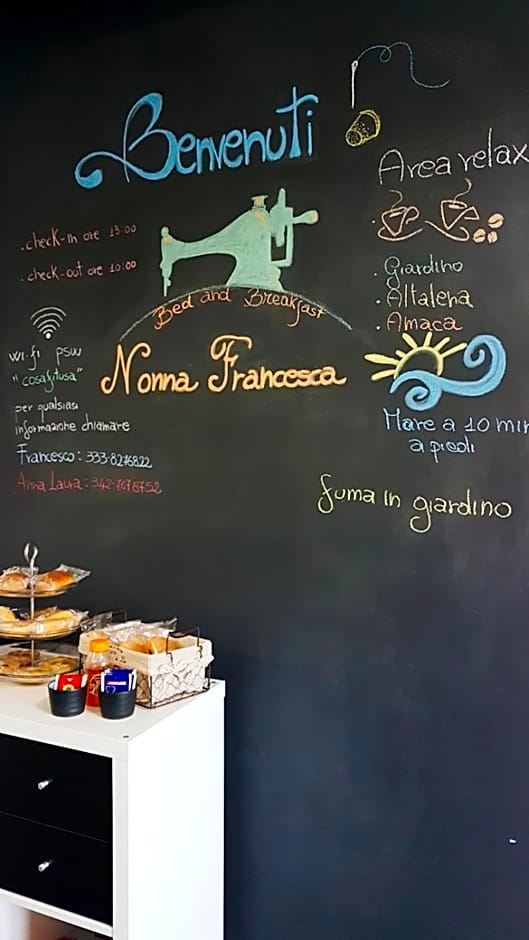 Benvenuti
Area relax
. check-in ore 13:00
. check-out ore 10:00
Bed and Breakfast
Nonna Francesca
. Giardino
. Altalena
. Amaca
wi-fi psw
"cosafitusa"
per qualsiasi
informazione chiamare
Francesco: 333-8276822
Anna Laura: 342-7678752
Mare a 10 min
a piedi
fuma in giardino